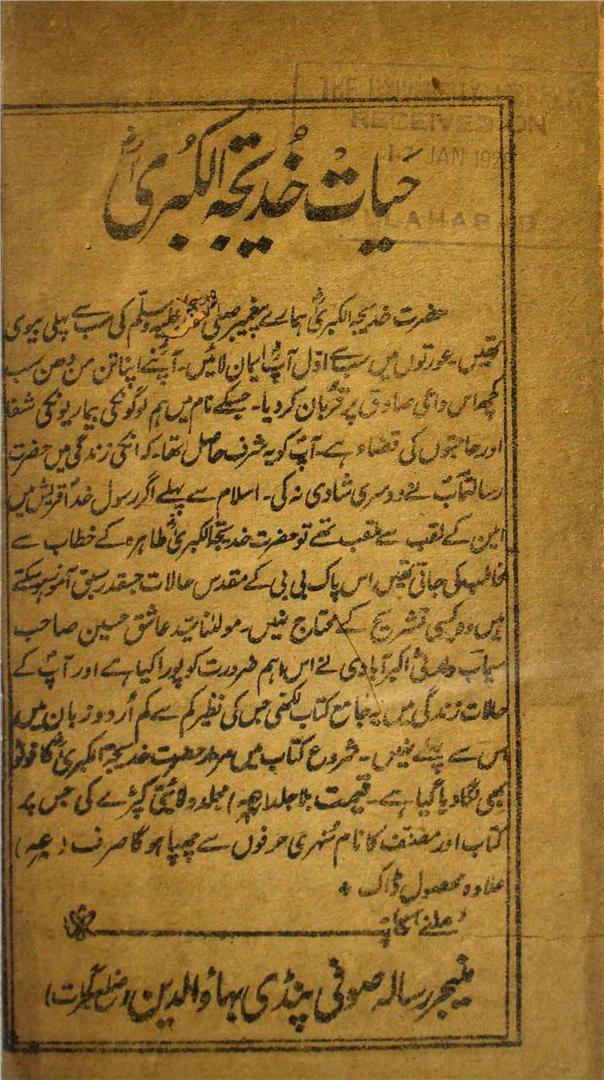 THE
RECEIVED ON
17 JAN 192
ALLAHABAD
حیات خدیجۃ الکبریٰؓ
حضرت خدیجۃ الکبریٰؓ ہمارے پیغمبر صلی اللہ علیہ وسلم کی سب سے پہلی بیوی
تھیں۔ عورتوں میں سب سے اوّل آپؓ ایمان لائیں۔ آپؓ نے اپنا تن من دھن سب
کچھ اس داعی صادق پر قربان کر دیا۔ جسکے نام میں ہم لوگونکی بیماریونکی شفا
اور حاجتوں کی قضاء ہے۔ آپؓ کو یہ شرف حاصل تھا۔ کہ انکی زندگی میں حضرت
رسالتمآبؐ نے دوسری شادی نہ کی۔ اسلام سے پہلے اگر رسول خداؐ قریش میں
امین کے لقب سے ملقب تھے تو حضرت خدیجۃ الکبریٰؓ طاہرہ کے خطاب سے
مخاطب کی جاتی تھیں اس پاک بی بی کے مقدس حالات جسقدر سبق آموز ہو سکتے
ہیں وہ کسی تشریح کے محتاج نہیں۔ مولٰنا سید عاشق حسین صاحب
سیماب وارثی اکبر آبادی نے اس اہم ضرورت کو پورا کیا ہے اور آپؓ کے
حالات زندگی میں یہ جامع کتاب لکھی جس کی نظیر کم سے کم اُردو زبان میں
اس سے پہلے نہیں۔ شروع کتاب میں مزار حضرت خدیجۃ الکبریٰؓ کا فوٹو
بھی لگا دیا گیا ہے۔ قیمت بلا جلد مجلد ولائتی کپڑے کی جس پر
کتاب اور مصنف کا نام سُنہری حرفوں سے چھپا ہو گا صرف
علاوہ محصول ڈاک +
ملنے کا پتہ
منیجر رسالہ صوفی پنڈی بہاؤالدین (ضلع گجرات)